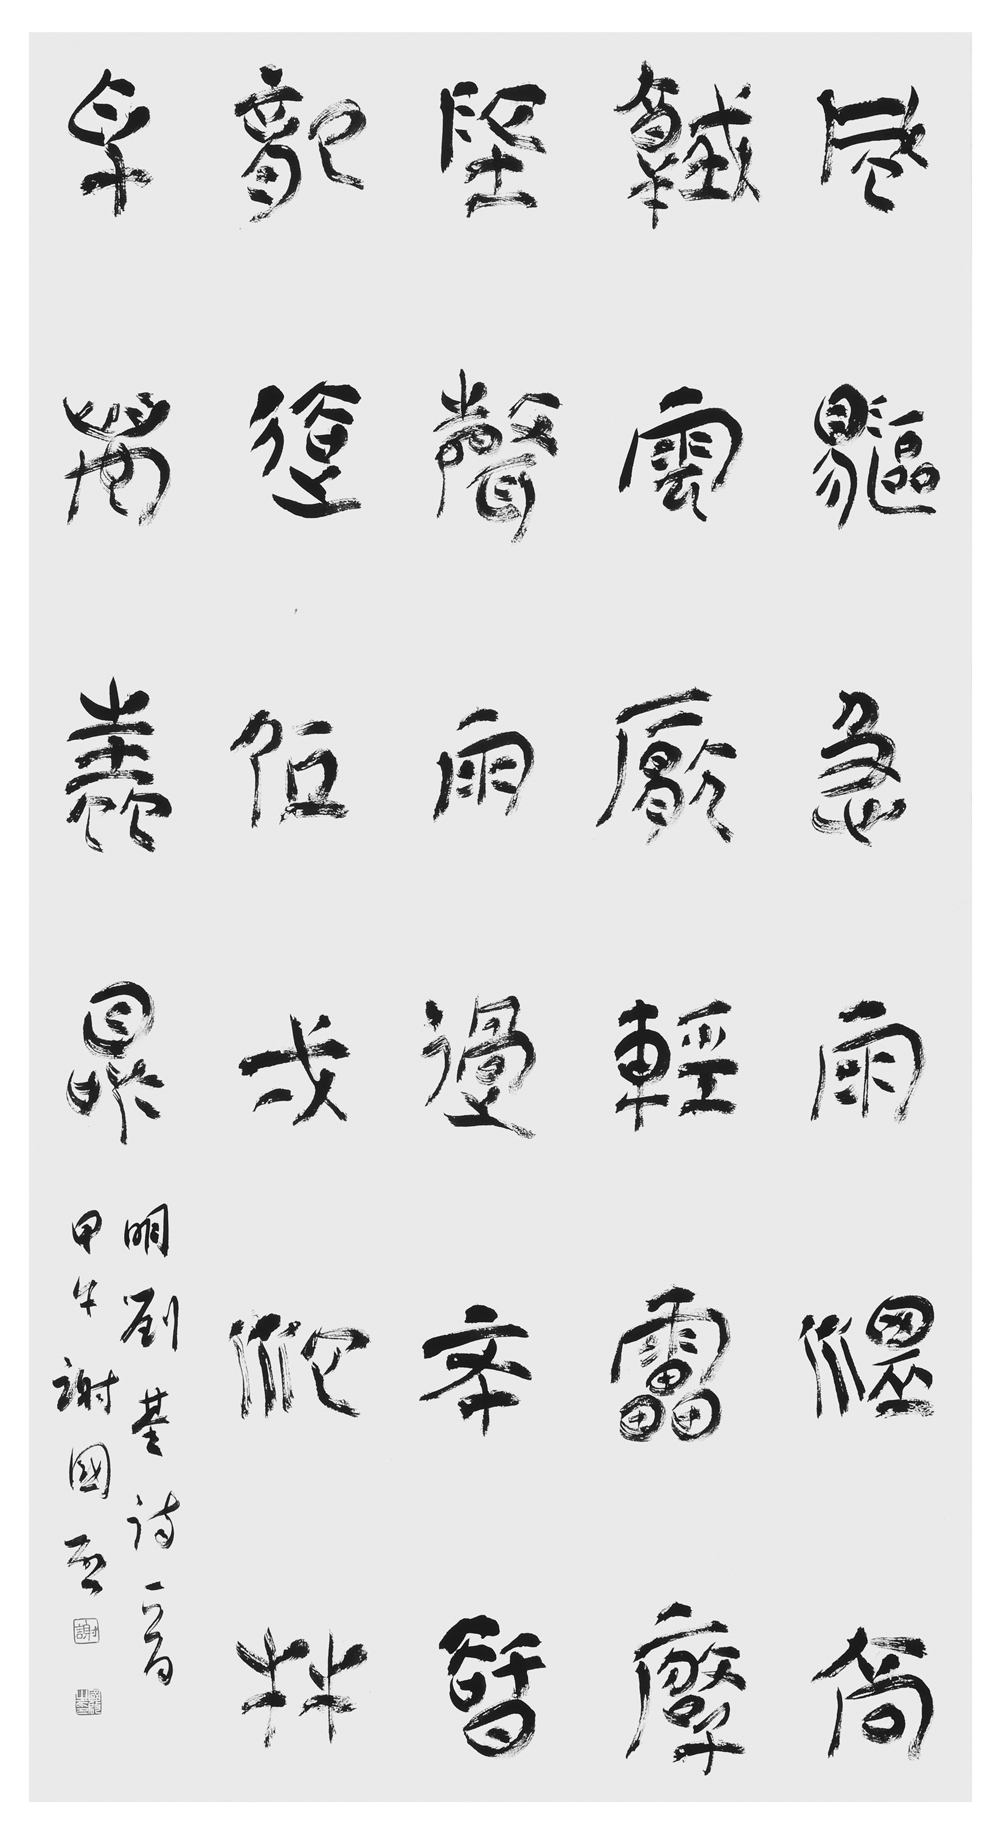 風驅急雨灑高
城雲壓輕雷殷
地聲雨過不知
龍去處一池草
色萬蛙鳴
明劉基詩一首
甲午謝國